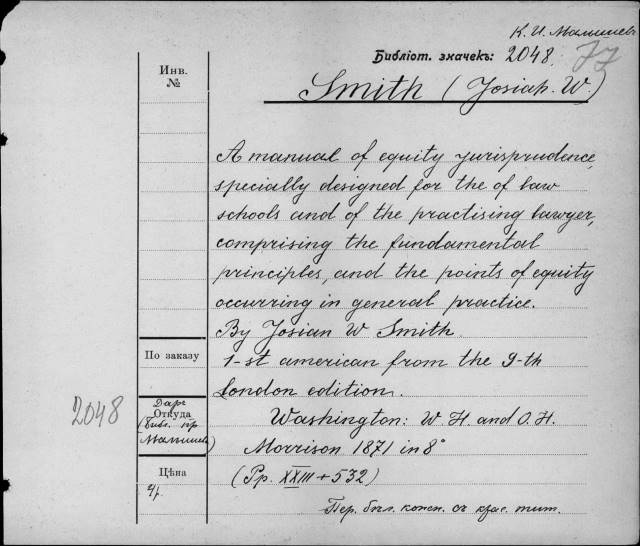 К. И. Малышевъ
Библіот. значекъ: 2048. 77
Smith (Josiah. W.)
Инв.
№
A manual of equity jurisprudence,
specially designed for the of law
schools and of the practising lawyer,
comprising the fundamental
principles, and the points of equity
occurring in general practice.
By Josian W Smith
По заказу
1-st american from the 9-th
London edition.
2048
Даръ
Откуда
(Библ. пр
Малышева)
Washington: W. H. and O. H.
Morrison 1871 in 8°
Цѣна
(Pp. XXIII + 532)
Пер. бѣл. кожн. съ крас. тит.